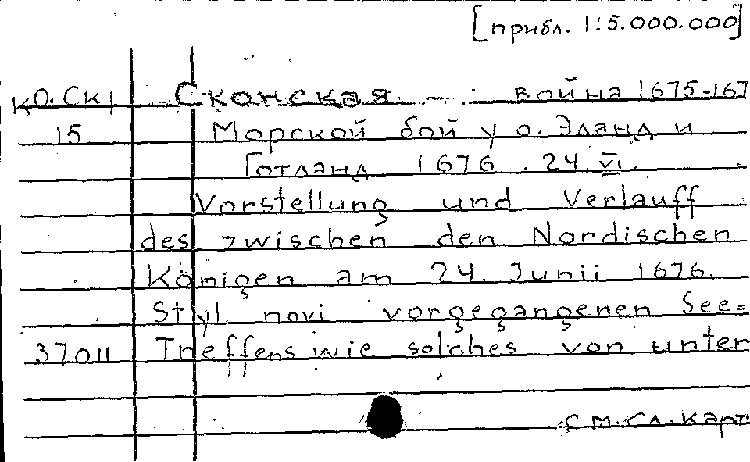 [прибл. 1:5.000.000]
КО. СК 1 Сконская война 1675-167
15 Морской бой у о. Эланд и
Готланд 1676. 24.VI.
Vorstellung und Verlauff
des zwischen den Nordischen
Königen am 24. Junii 1676.
Styl novi vorgegangenen See=
37011 Treffens wie solches von unter
см. сл. карт